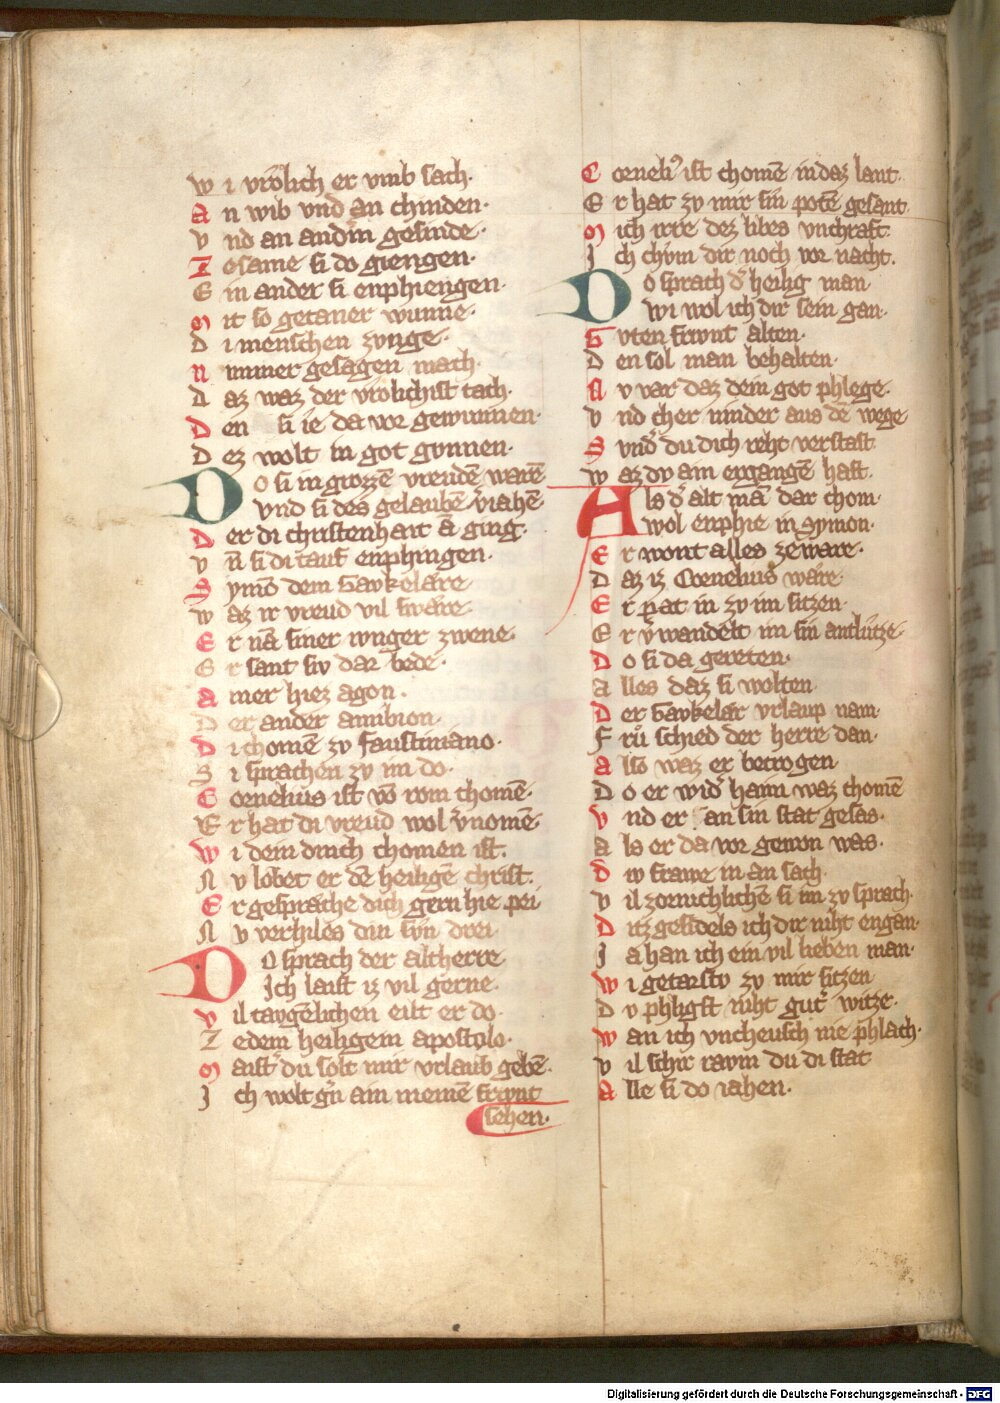 W i vrolich er vmb sach·
A n wib vnd an chinden·
V nd an andˀm gesinde·
Z esame si do giengen·
E in ander si enphiengen·
M it so getaner wunne·
D i menschen zvnge·
N immer gesagen mach·
D az waz der vrolichist tach·
D en si ie da vor gewunnen·
D ez wolt in got gvnnen·
D o si in grozzē vreudē warē
Vnd si des gelaubē vˀiahē
D er di christenhait ā ging·
V n̄ si di tauf enphingen·
S ymō dem Gavkelare
W az ir vreud vil swäre·
E r nā siner ivnger zwene·
E r sant siv dar bede·
A iner hiez agon·
D er ander amibion·
D i chomē zv faustiniano·
S i sprachen zv im do·
C ornelius ist vō rom chomē·
E r hat di vreud wol vˀnomē·
W i dein dinch chomen ist·
N v lobet er dē heiligē christ·
E r gespräche dich gern hie pei
N v verhiles din svn drei
D o sprach der altherre
Ich laist iz vil gerne·
V il tavgēlichen eilt er do·
Z edem heiligem apostolo·
M aistˀ du solt mir vrlaub gebē·
I ch wolt gˀn ain meinē frivnt
sehen·
C orneliˀ ist chomē in daz lant·
E r hat zv mir sin potē gesant
M ich irre dez libes vnchraft
I ch chvm dir noch vor nacht.
D o sprach dˀ heilig man
Wi wol ich dir sein gan·
G vten frivnt alten·
D en sol man behalten·
N v var daz dein got phlege·
V nd cher ninder aus dē wege
S vndˀ du dich reht verstast
W az dv ain ergangē hast·
A ls dˀ alt mā dar chom·
Wol enphie in symon·
E r wont alles zeware·
D az iz Cornelius wäre·
E r pat in zv im sitzen·
E r vˀwandelt im sin antlütze·
D o si da gereten·
A lles daz si wolten
D er Gavkelär vrlaup nam·
F rü schied der herre dan·
A lso waz er betrogen
D o er widˀ haim waz chomē
V nd er an sin stat gesas·
A ls er da vor gewon was·
D iv frawe in an sach·
V il zornichlichē si im zv sprach·
D itz gesidels ich dir niht engan·
I a han ich ein vil lieben man·
W i getarstv zv mir sitzen
D v phligst niht gutˀ witze·
W an ich vncheusch nie phlach·
V il schir ravm du di stat
A lle si do iahen·
Digitalisierung gefördert durch die Deutsche Forschungsgemeinschaft - DFG